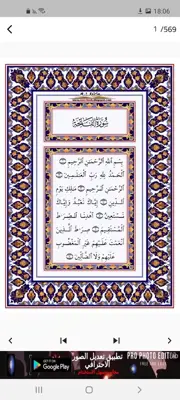 18:06
1 /569
سورة الفاتحة
بِسْمِ اللَّهِ الرَّحْمَٰنِ الرَّحِيمِ ۝
الْحَمْدُ لِلَّهِ رَبِّ الْعَالَمِينَ ۝
الرَّحْمَٰنِ الرَّحِيمِ ۝ مَالِكِ يَوْمِ
الدِّينِ ۝ إِيَّاكَ نَعْبُدُ وَإِيَّاكَ
نَسْتَعِينُ ۝ اهْدِنَا الصِّرَاطَ
الْمُسْتَقِيمَ ۝ صِرَاطَ الَّذِينَ
أَنْعَمْتَ عَلَيْهِمْ غَيْرِ الْمَغْضُوبِ
عَلَيْهِمْ وَلَا الضَّالِّينَ ۝
تطبيق تعديل الصور
الاحترافي
GET IT ON
Google Play
PRO PHOTO EDITOR